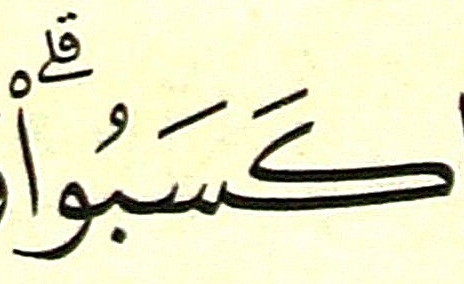 كَسَبُوا۟ ۗ